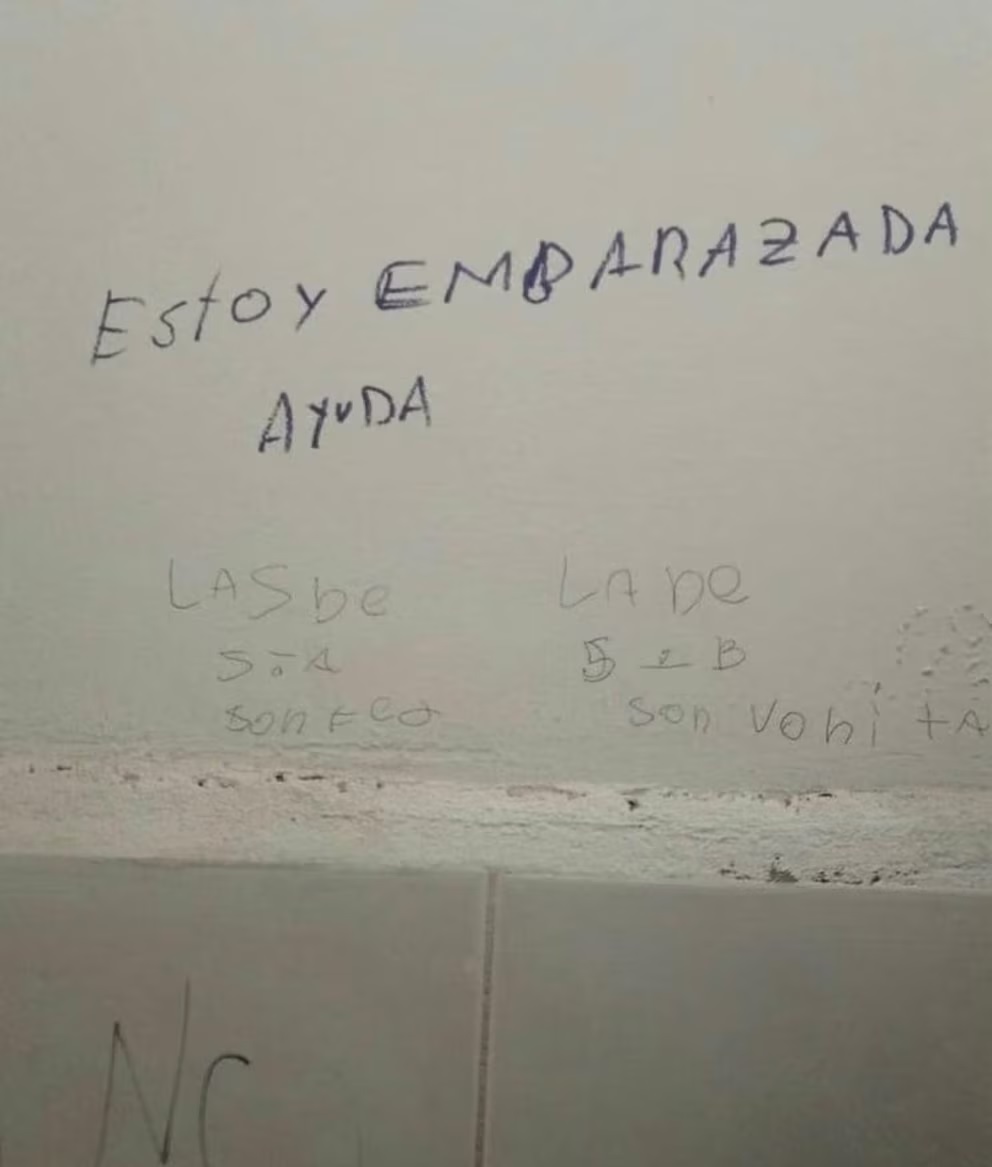 Estoy EMBARAZADA
AYUDA
LAS De
5-A
son FEA
LA De
5-B
son voni tA
NC